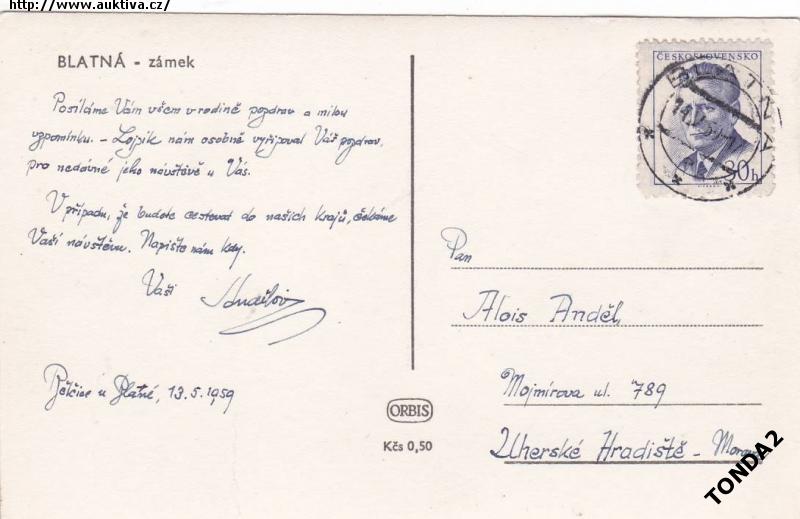 http://www.auktiva.cz/
BLATNÁ - zámek
ČESKOSLOVENSKO
BLATNÁ
30h
Posíláme Vám všem v rodině pozdrav a milou
vzpomínku. - Lojzik nám osobně vyřipoval Váš pozdrav,
pro nedávné jeho návštěvě u Vás.
V případu, že budete cestovat do našich krajů, čekáme
Vaší návštěvu. Napište nám kdy.
Vaši
Bělčice u Blatné, 13.5.1959
Pan
Alois Anděl,
Mojmírova ul. 789
Uherské Hradiště - Morava
ORBIS
Kčs 0,50
TONDA2